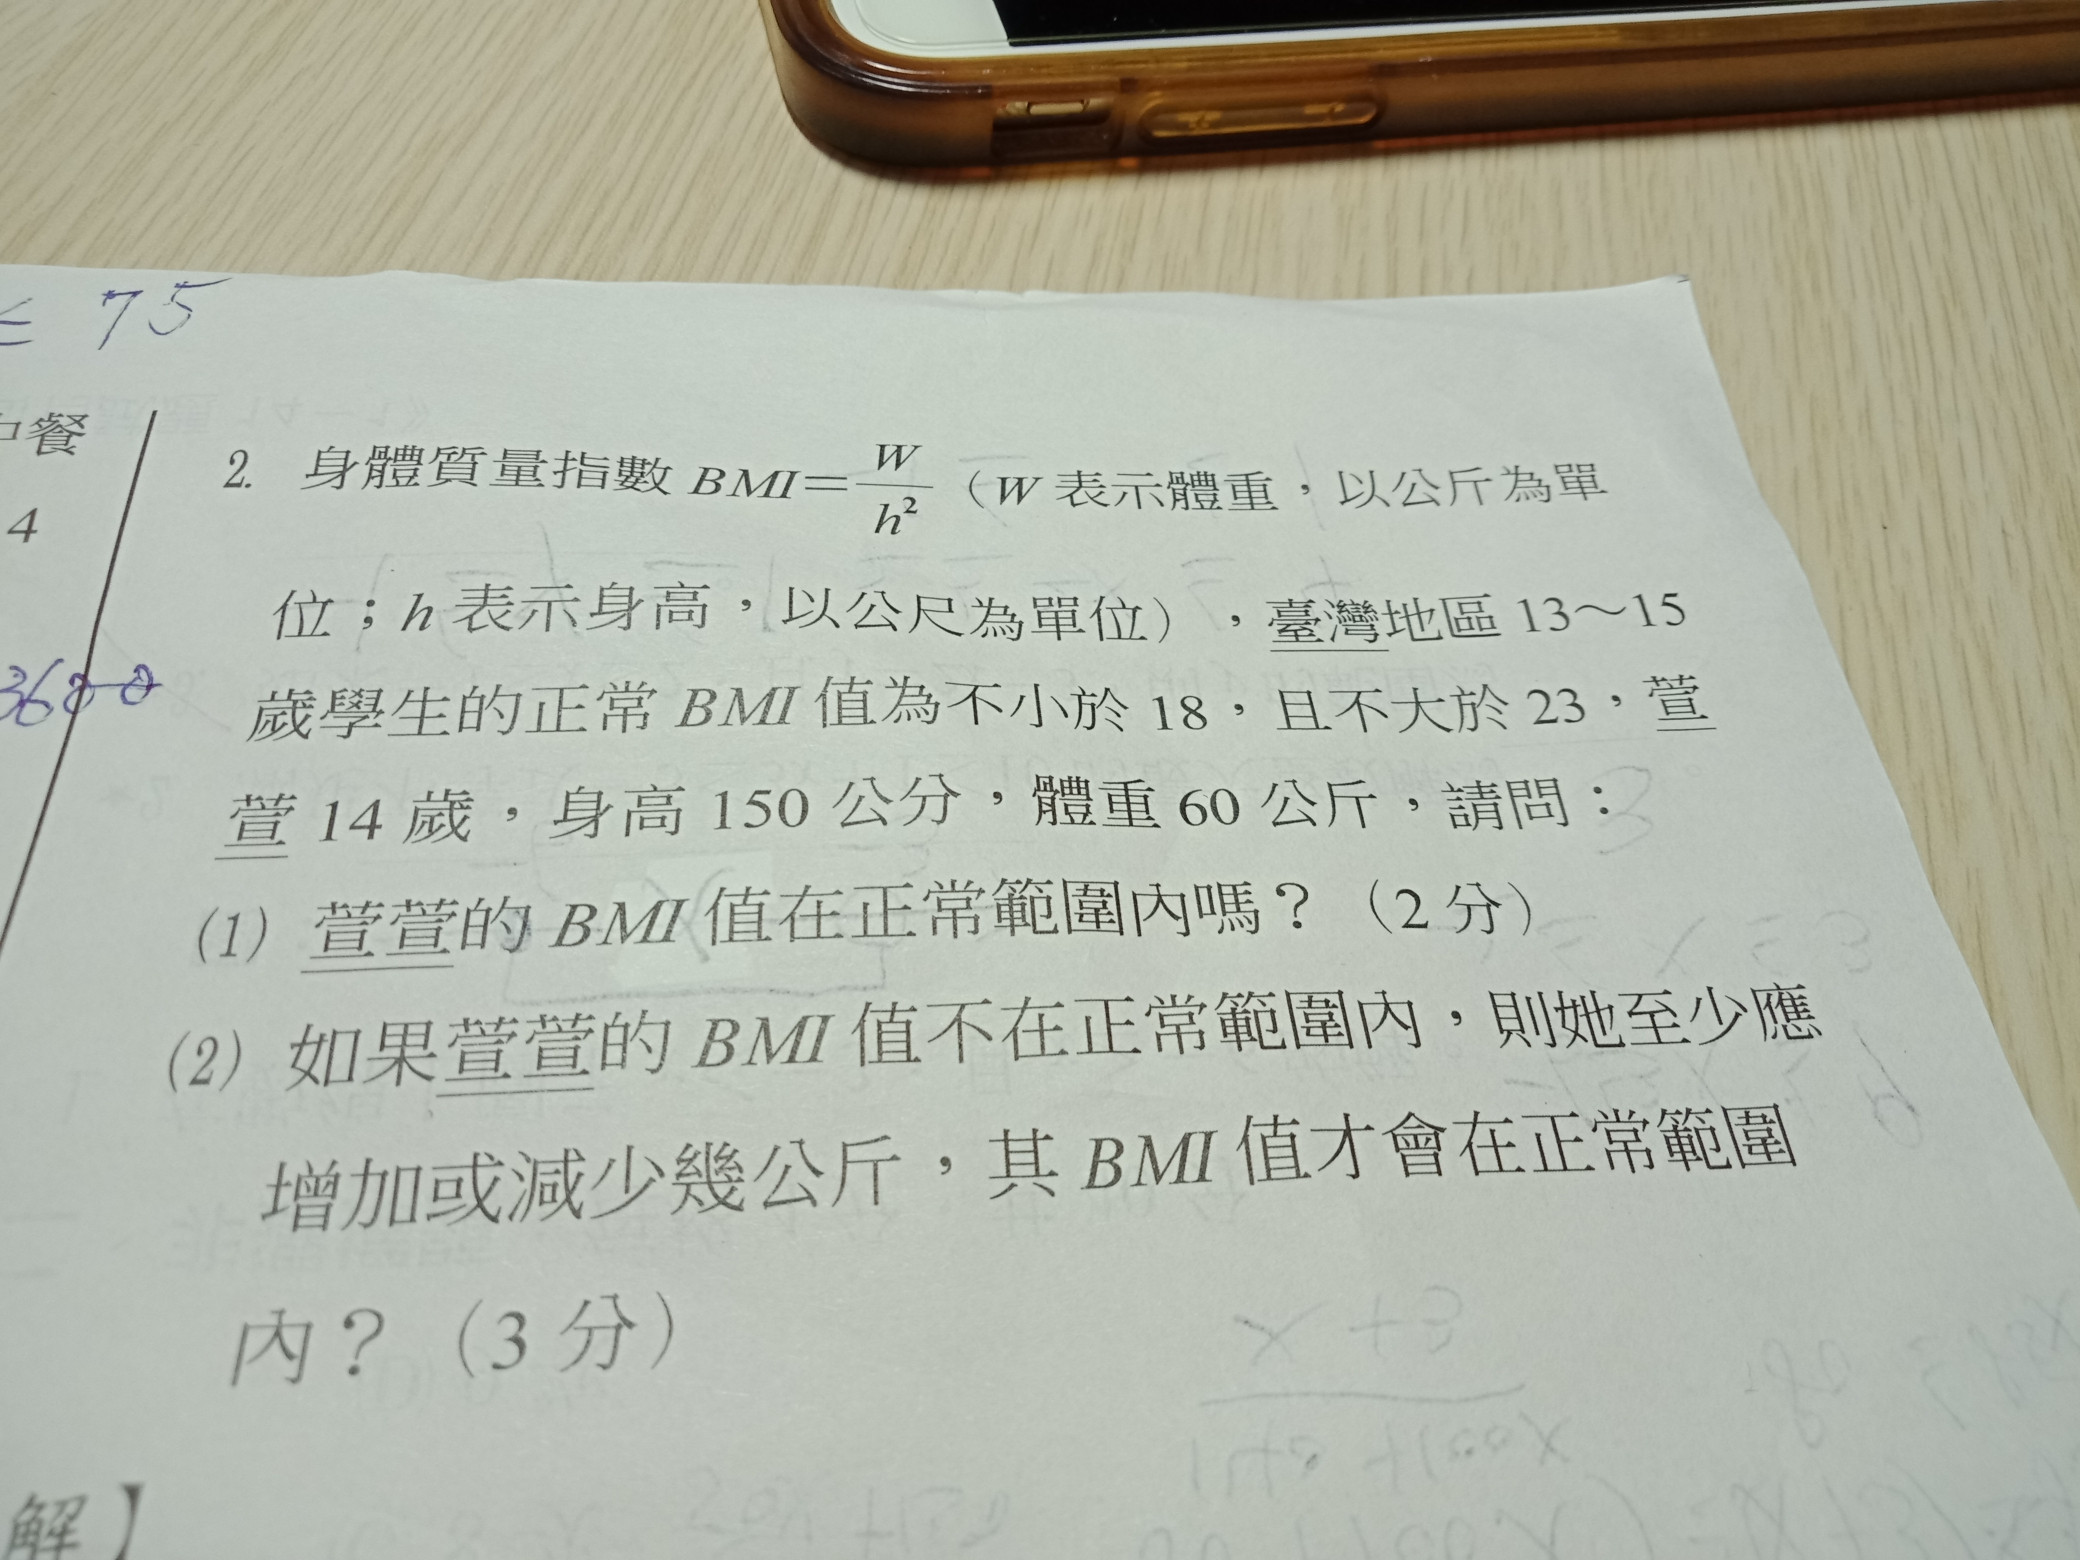 ≤ 75
中餐
4
3600
2. 身體質量指數 BMI=W/h² (W 表示體重,以公斤為單
位;h 表示身高,以公尺為單位),臺灣地區 13～15
歲學生的正常 BMI 值為不小於 18,且不大於 23,萱
萱 14 歲,身高 150 公分,體重 60 公斤,請問:
(1) 萱萱的 BMI 值在正常範圍內嗎?(2 分)
(2) 如果萱萱的 BMI 值不在正常範圍內,則她至少應
增加或減少幾公斤,其 BMI 值才會在正常範圍
內?(3 分)
解】